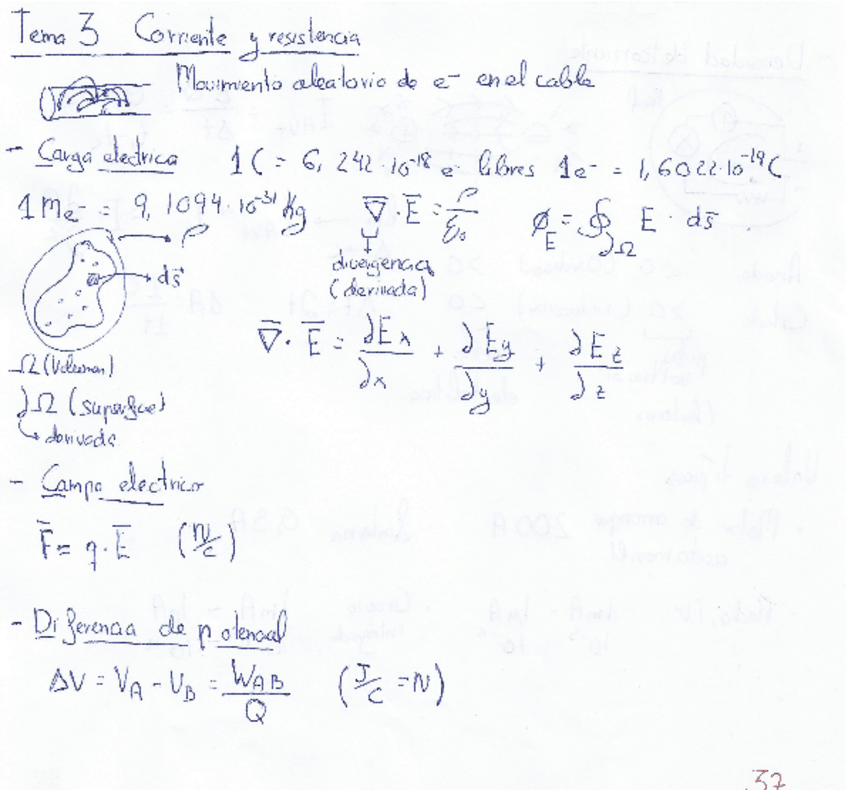 Tema 3 Corriente y resistencia
Movimiento aleatorio de e⁻ en el cable
- Carga electrica 1C = 6,242·10⁻¹⁸ e⁻ libres 1e⁻ = 1,6022·10⁻¹⁹C
1 Me⁻ = 9,1094·10⁻³¹ Kg ∇̅·E̅ = ρ/ε₀ ϕ_E = ∮_∂Ω E · ds̅ .
ρ
ds⃗
divergencia
(derivada)
∇̅ · E̅ = ∂Ex/∂x + ∂Ey/∂y + ∂Ez/∂z
Ω (Volumen)
∂Ω (superficie)
↳ derivada
- Campo electrico
F̅ = q · E̅ (N/C)
- Diferencia de potencial
ΔV = V_A - V_B = W_AB/Q (J/C = N)
37